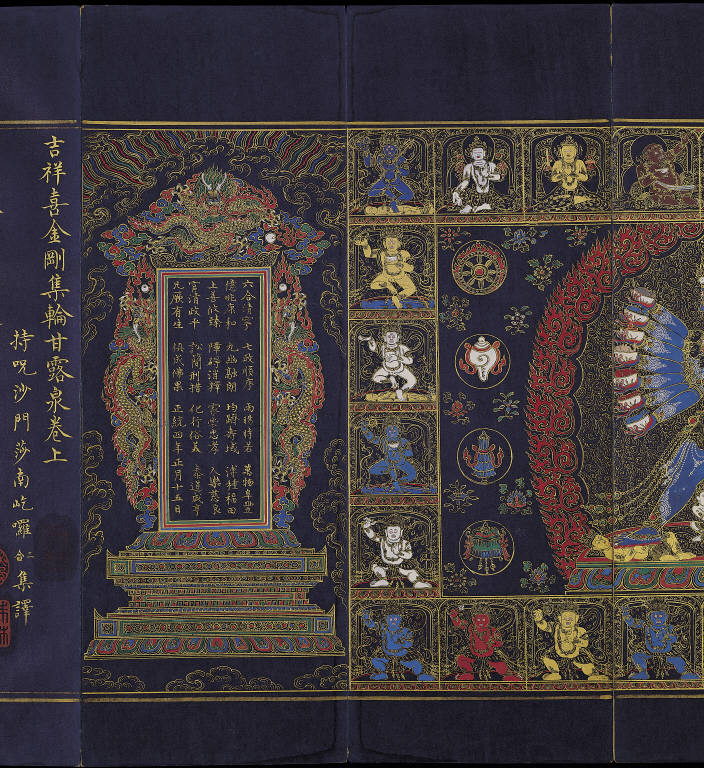 六合清寧 七政順序 雨暘時若 萬物阜豐
億兆康和 九幽融朗 均躋壽域 溥種福田
上善攸臻 障碍消釋 家崇忠孝 人樂慈良
官清政平 訟簡刑措 化行俗美 泰道咸亨
凡厥有生 俱成佛果 正統四年正月十五日
吉祥喜金剛集輪甘露泉卷上
持呪沙門莎南屹囉 集譯